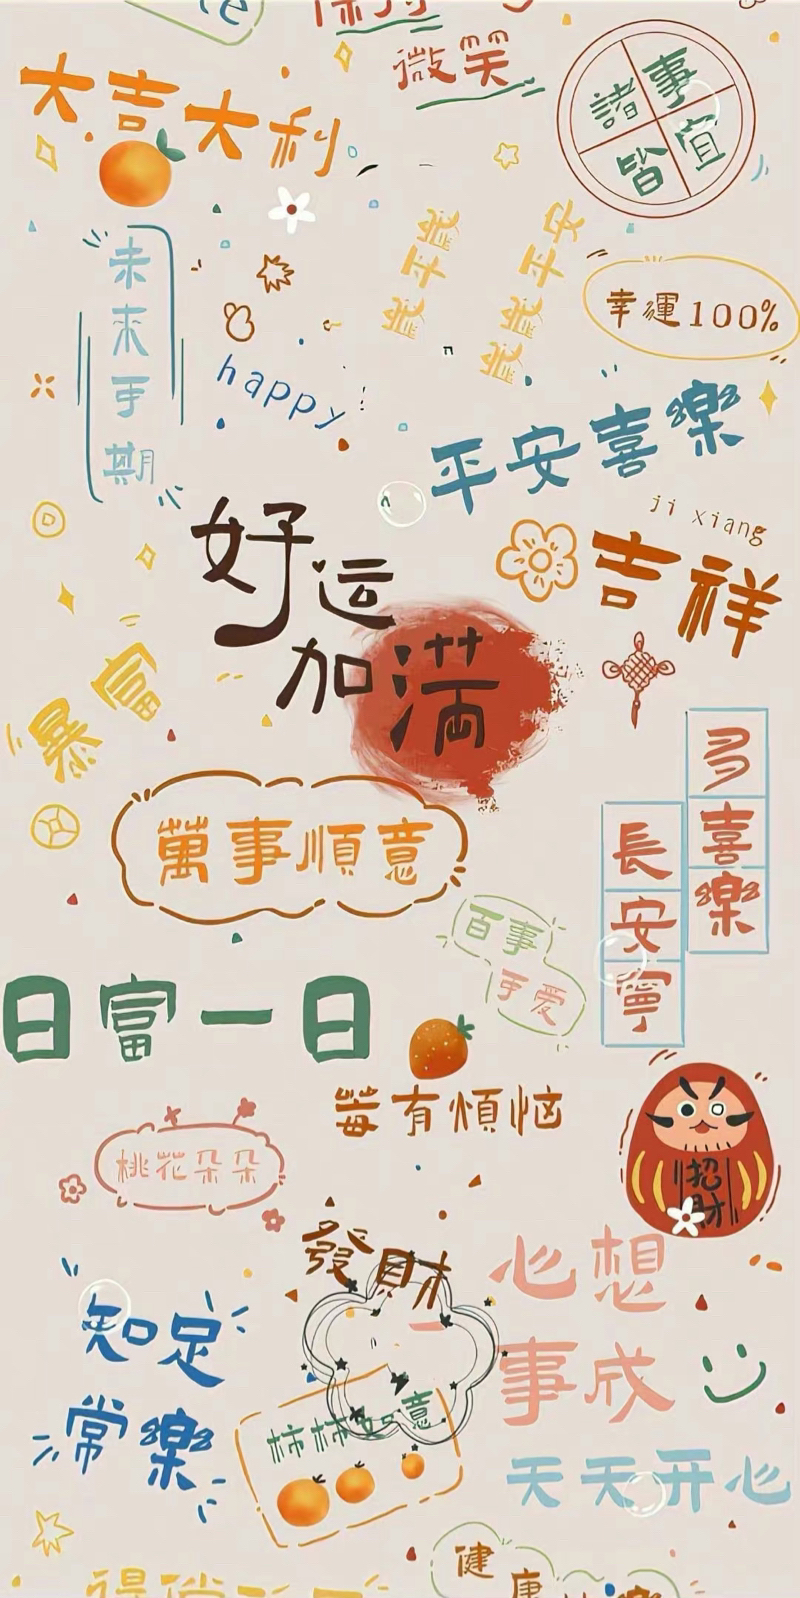 微笑
大吉大利
諸事
皆宜
歲歲平安
歲歲平安
幸運100%
未來可期
happy
平安喜樂
ji xiang
吉祥
好运
加满
暴富
多喜樂
長安寧
萬事順意
百事
可爱
日富一日
莓有煩恼
桃花朵朵
招財
發財
心想
事成
知足
常樂
柿柿如意
天天开心
健康